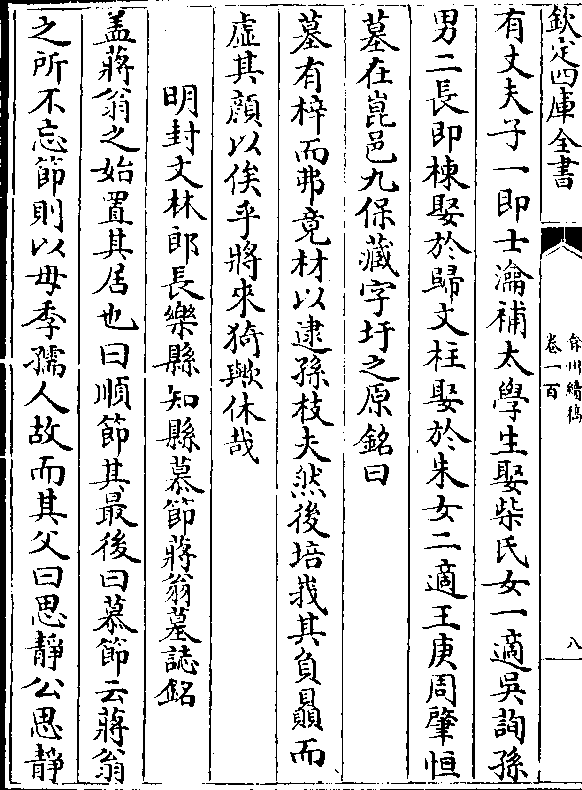 欽定四庫全書
弇州續稿
卷一百
八
有丈夫子一即士瀹補太學生娶柴氏女一適吳詢孫
男二長即棟娶於歸文柱娶於朱女二適王庚周肇恒
墓在崑邑九保藏字圩之原銘曰
墓有梓而弗竟材以逮孫枝夫然後培我其負贔而
虛其顔以俟乎將來猗歟休哉
明封文林郎長樂縣知縣慕節蔣翁墓誌銘
盖蔣翁之始置其居也曰順節其最後曰慕節云蔣翁
之所不忘節則以毋季孺人故而其父曰思靜公思靜